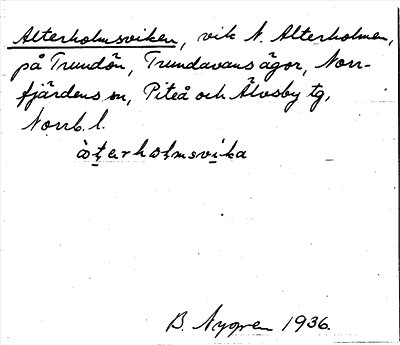 Alterholmsviken, vik N. Alterholmen,
på Trundön, Trundavans ägor, Norr-
fjärdens sn, Piteå och Älvsby tg,
Norrb. l.
àṭerhoḷmsvika
B. Nygren 1936.